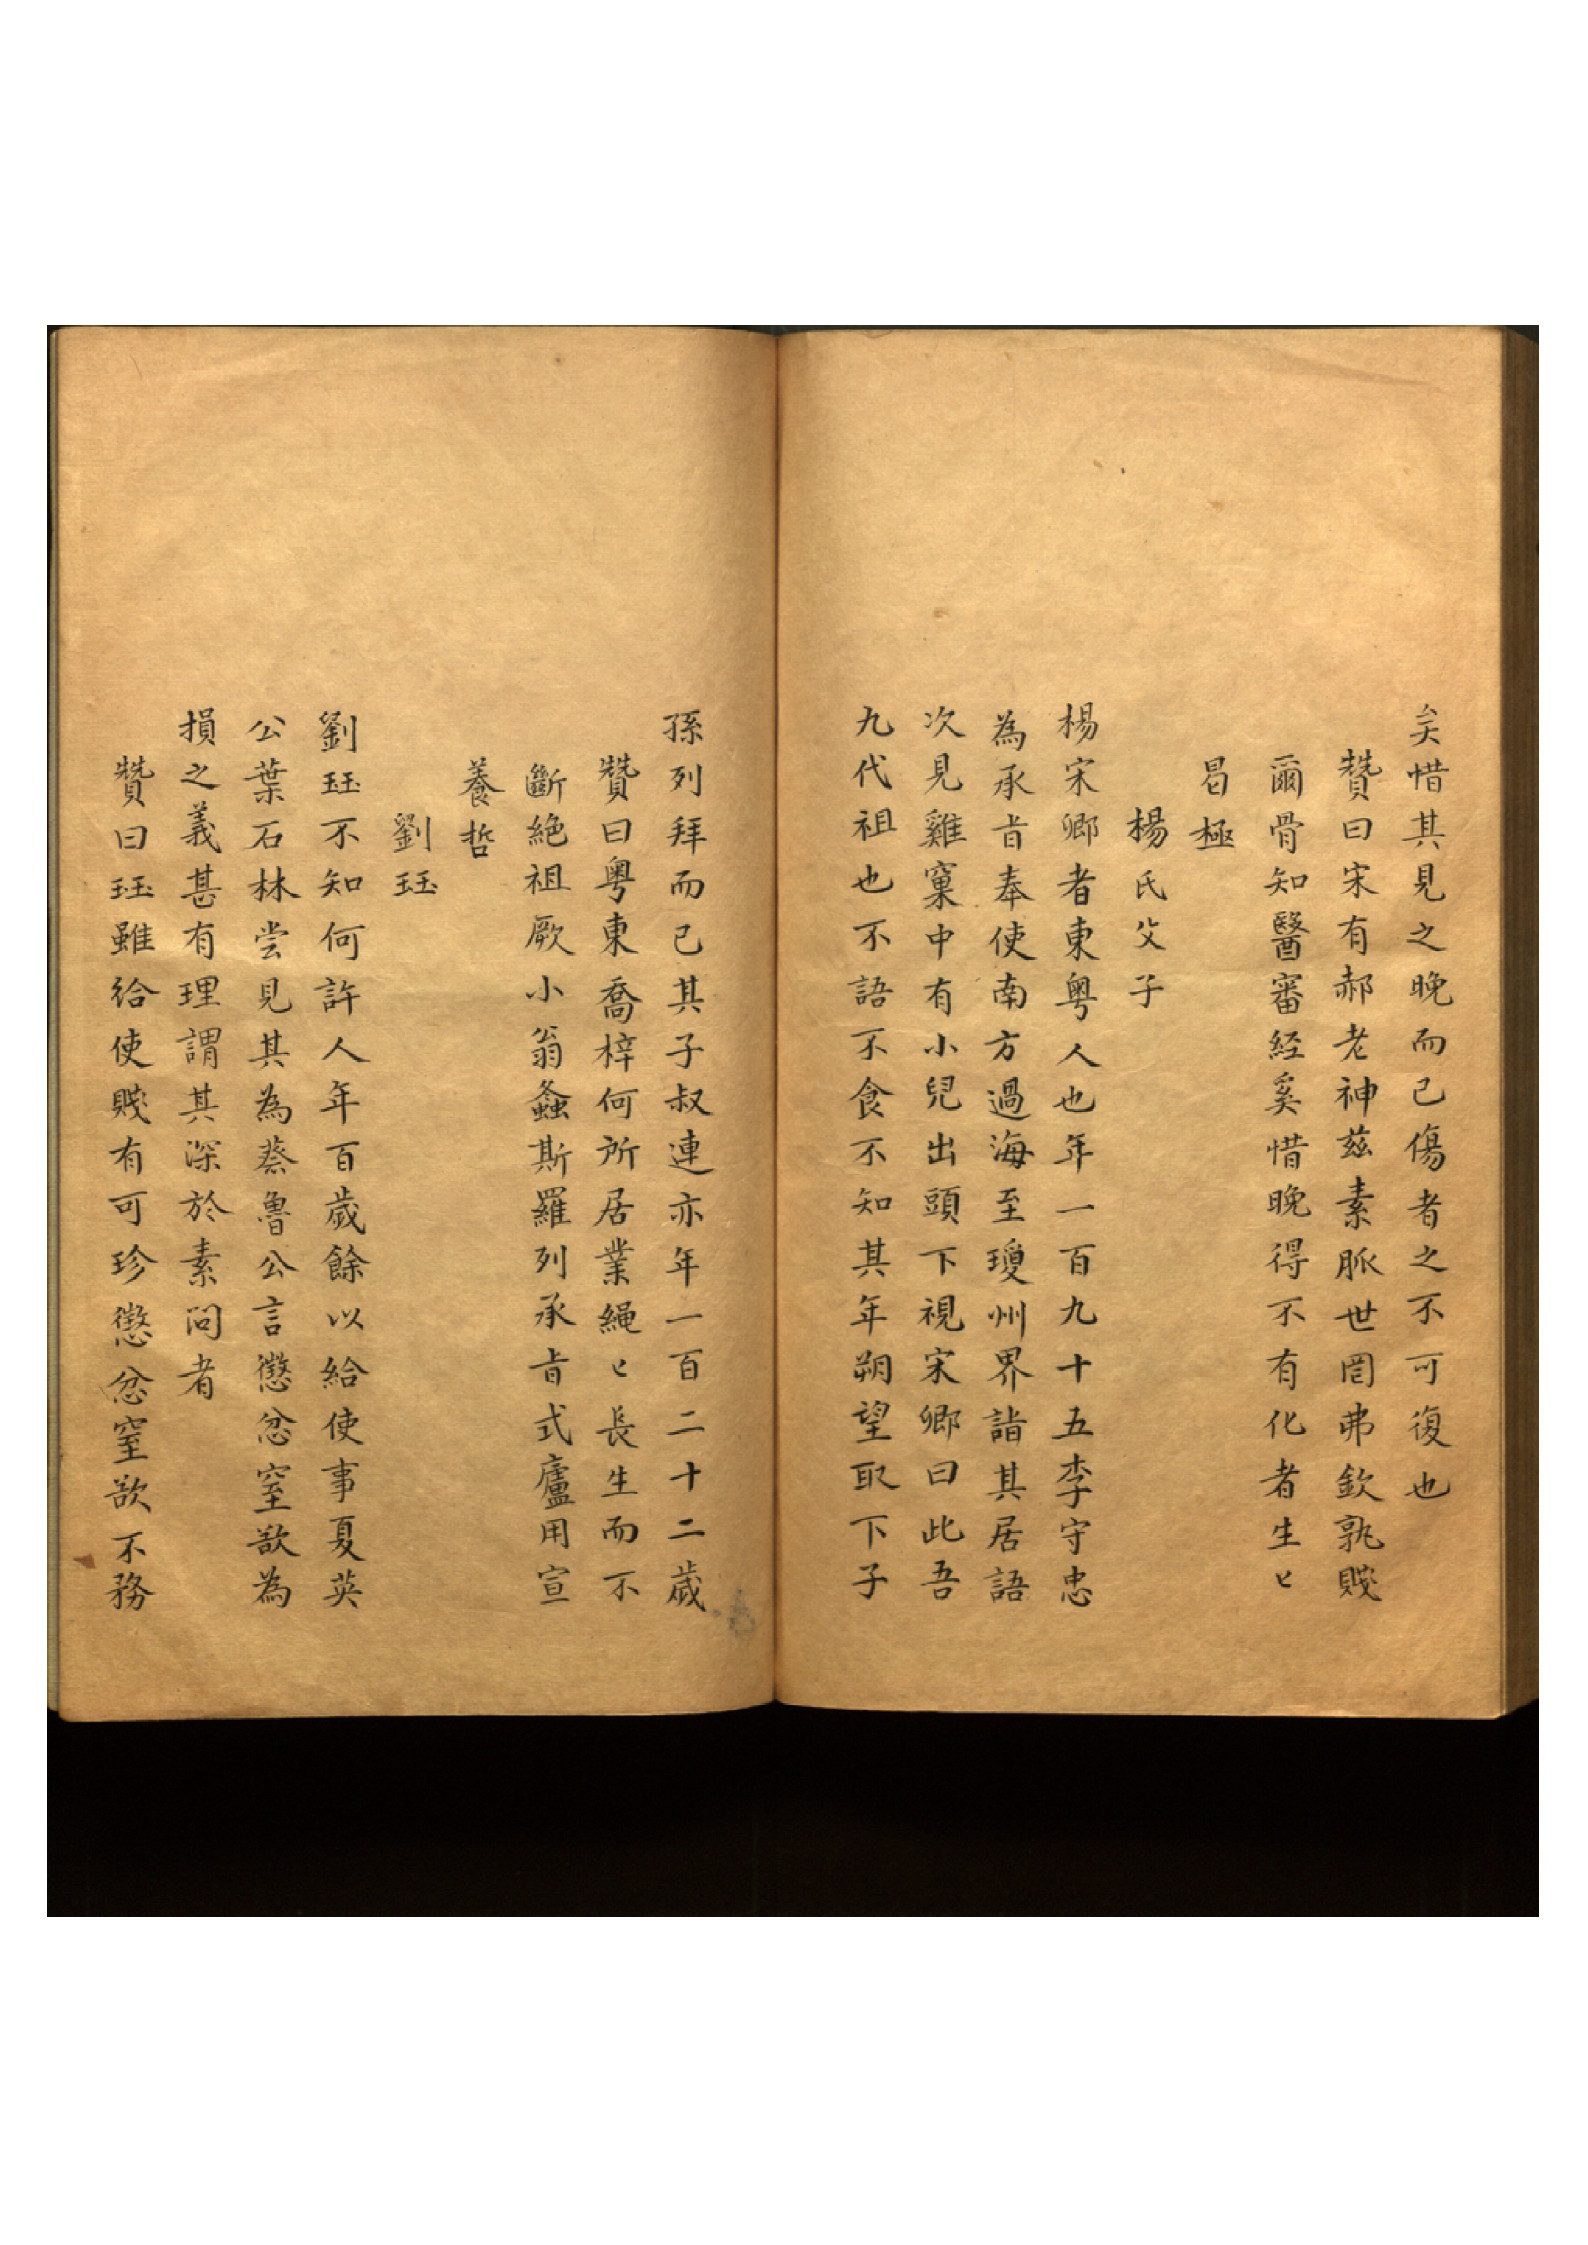 矣惜其見之晚而已傷者之不可復也
贊曰宋有郝老神兹素脈世罔弗欽孰賤
爾骨知醫審経奚惜晚得不有化者生〻
曷極
楊氏父子
楊宋卿者東粤人也年一百九十五李守忠
為承旨奉使南方過海至瓊州界詣其居語
次見雞窠中有小兒出頭下視宋卿曰此吾
九代祖也不語不食不知其年朔望取下子
孫列拜而已其子叔連亦年一百二十二歲
贊曰粤東喬梓何所居業繩〻長生而不
斷絶祖厥小翁螽斯羅列承旨式廬用宣
養哲
劉珏
劉珏不知何許人年百歲餘以給使事夏英
公葉石林尝見其為蔡魯公言懲忿窒欲為
損之義甚有理謂其深於素问者
贊曰珏雖給使賤有可珍懲忿窒欲不務